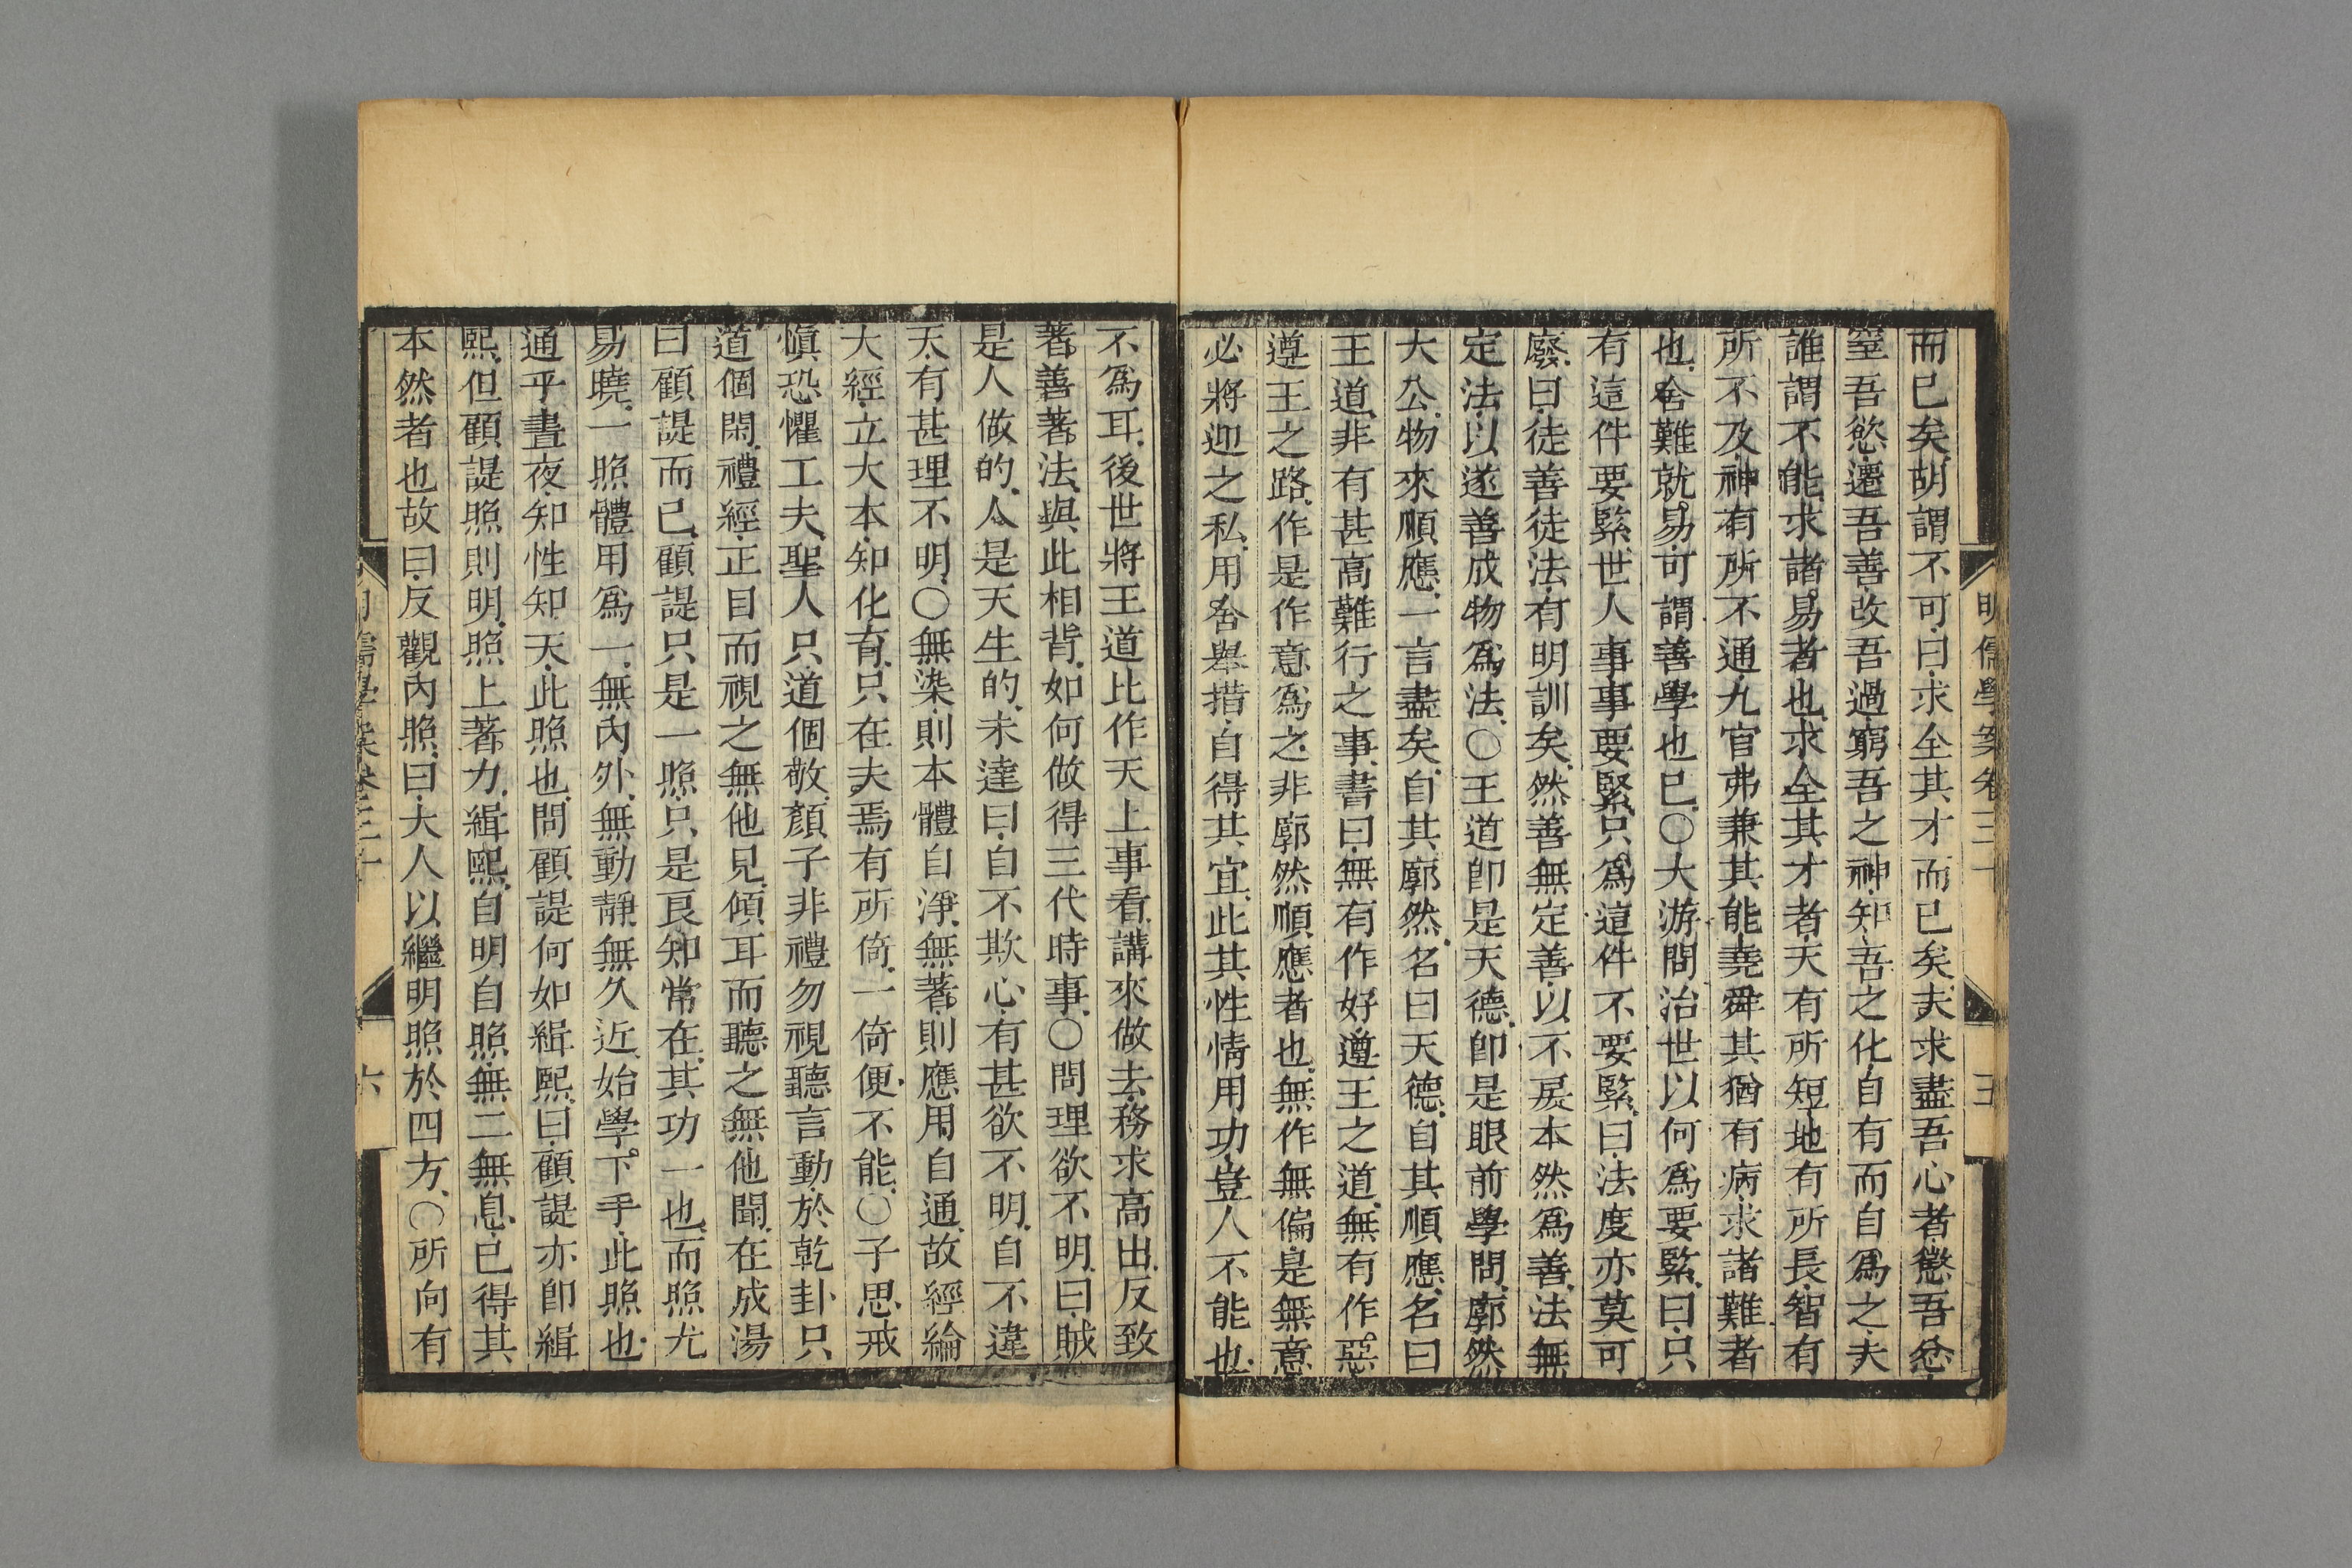 明儒學案卷三十
五
而已矣胡謂不可曰求全其才而已矣夫求盡吾心者懲吾忿
窒吾慾遷吾善改吾過窮吾之神知吾之化自有而自爲之夫
誰謂不能求諸易者也求全其才者天有所短地有所長智有
所不及神有所不通九官弗兼其能堯舜其猶有病求諸難者
也舍難就易可謂善學也已〇大游問治世以何爲要緊曰只
有這件要緊世人事事要緊只爲這件不要緊曰法度亦莫可
廢曰徒善徒法有明訓矣然善無定善以不戾本然爲善法無
定法以遂善成物爲法〇王道卽是天德卽是眼前學問廓然
大公物來順應一言盡矣自其廓然名曰天德自其順應名曰
王道非有甚高難行之事書曰無有作好遵王之道無有作惡
遵王之路作是作意爲之非廓然順應者也無作無偏是無意
必將迎之私用舍舉措自得其宜此其性情用功豈人不能也
不爲耳後世將王道比作天上事看講來做去務求高出反致
著善著法與此相背如何做得三代時事〇問理欲不明曰賊
是人做的人是天生的未達曰自不欺心有甚欲不明自不違
天有甚理不明〇無染則本體自淨無著則應用自通故經綸
大經立大本知化育只在夫焉有所倚一倚便不能〇子思戒
愼恐懼工夫聖人只道個敬顏子非禮勿視聽言動於乾卦只
道個閑禮經正目而視之無他見傾耳而聽之無他聞在成湯
曰顧諟而已顧諟只是一照只是良知常在其功一也而照尤
易曉一照體用爲一無內外無動靜無久近始學下手此照也
通乎晝夜知性知天此照也問顧諟何如緝熙曰顧諟亦卽緝
熙但顧諟照則明照上著力緝熙自明自照無二無息已得其
本然者也故曰反觀內照曰大人以繼明照於四方〇所向有
明儒學案卷三十
六